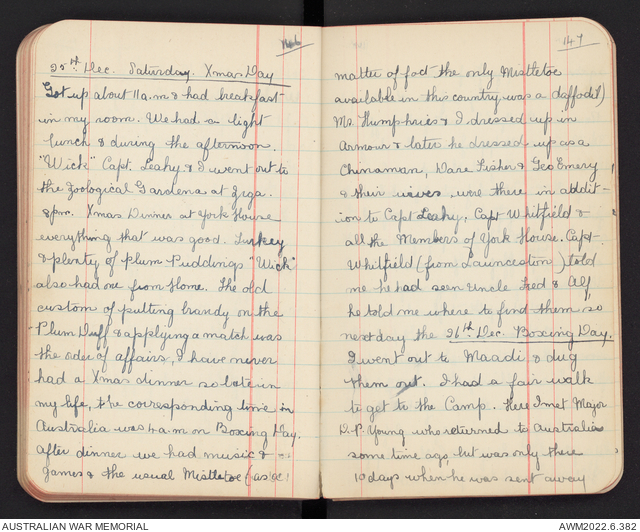 146
25th Dec. Saturday. Xmas Day
Got up about 11 a.m & had breakfast
in my room. We had a light
lunch & during the afternoon.
"Wick" Capt. Leahy & I went out to
the Zoological Gardens at Giza.
8pm. Xmas Dinner at York House
everything that was good. Turkey
& plenty of Plum Puddings "Wick"
also had one from Home. The old
custom of putting brandy on the
Plum Duff & applying a match was
the order of affairs, I have never
had a Xmas dinner so late in
my life, the corresponding time in
Australia was 4 a.m on Boxing Day.
after dinner we had music &
games & the usual Mistletoe (as a
147
matter of fact the only Mistletoe
available in this country was a daffodil)
Mr. Humphries & I dressed up in
Armour & later he dressed up as a
Chinaman, Dave Fisher & Geo Emery
& their wives were there in addit-
ion to Capt Leahy, Capt Whitfield &
all the Members of York House. Capt.
Whitfield (from Launceston) told
me he had seen Uncle Fred & Alf,
he told me where to find them so
next day the 26th Dec. Boxing Day.
I went out to Maadi & dug
them out. I had a fair walk
to get to the Camp. Here I met Major
D.P. Young who returned to Australia
some time ago, but was only there
10 days when he was sent away
AUSTRALIAN WAR MEMORIAL
AWM2022.6.382